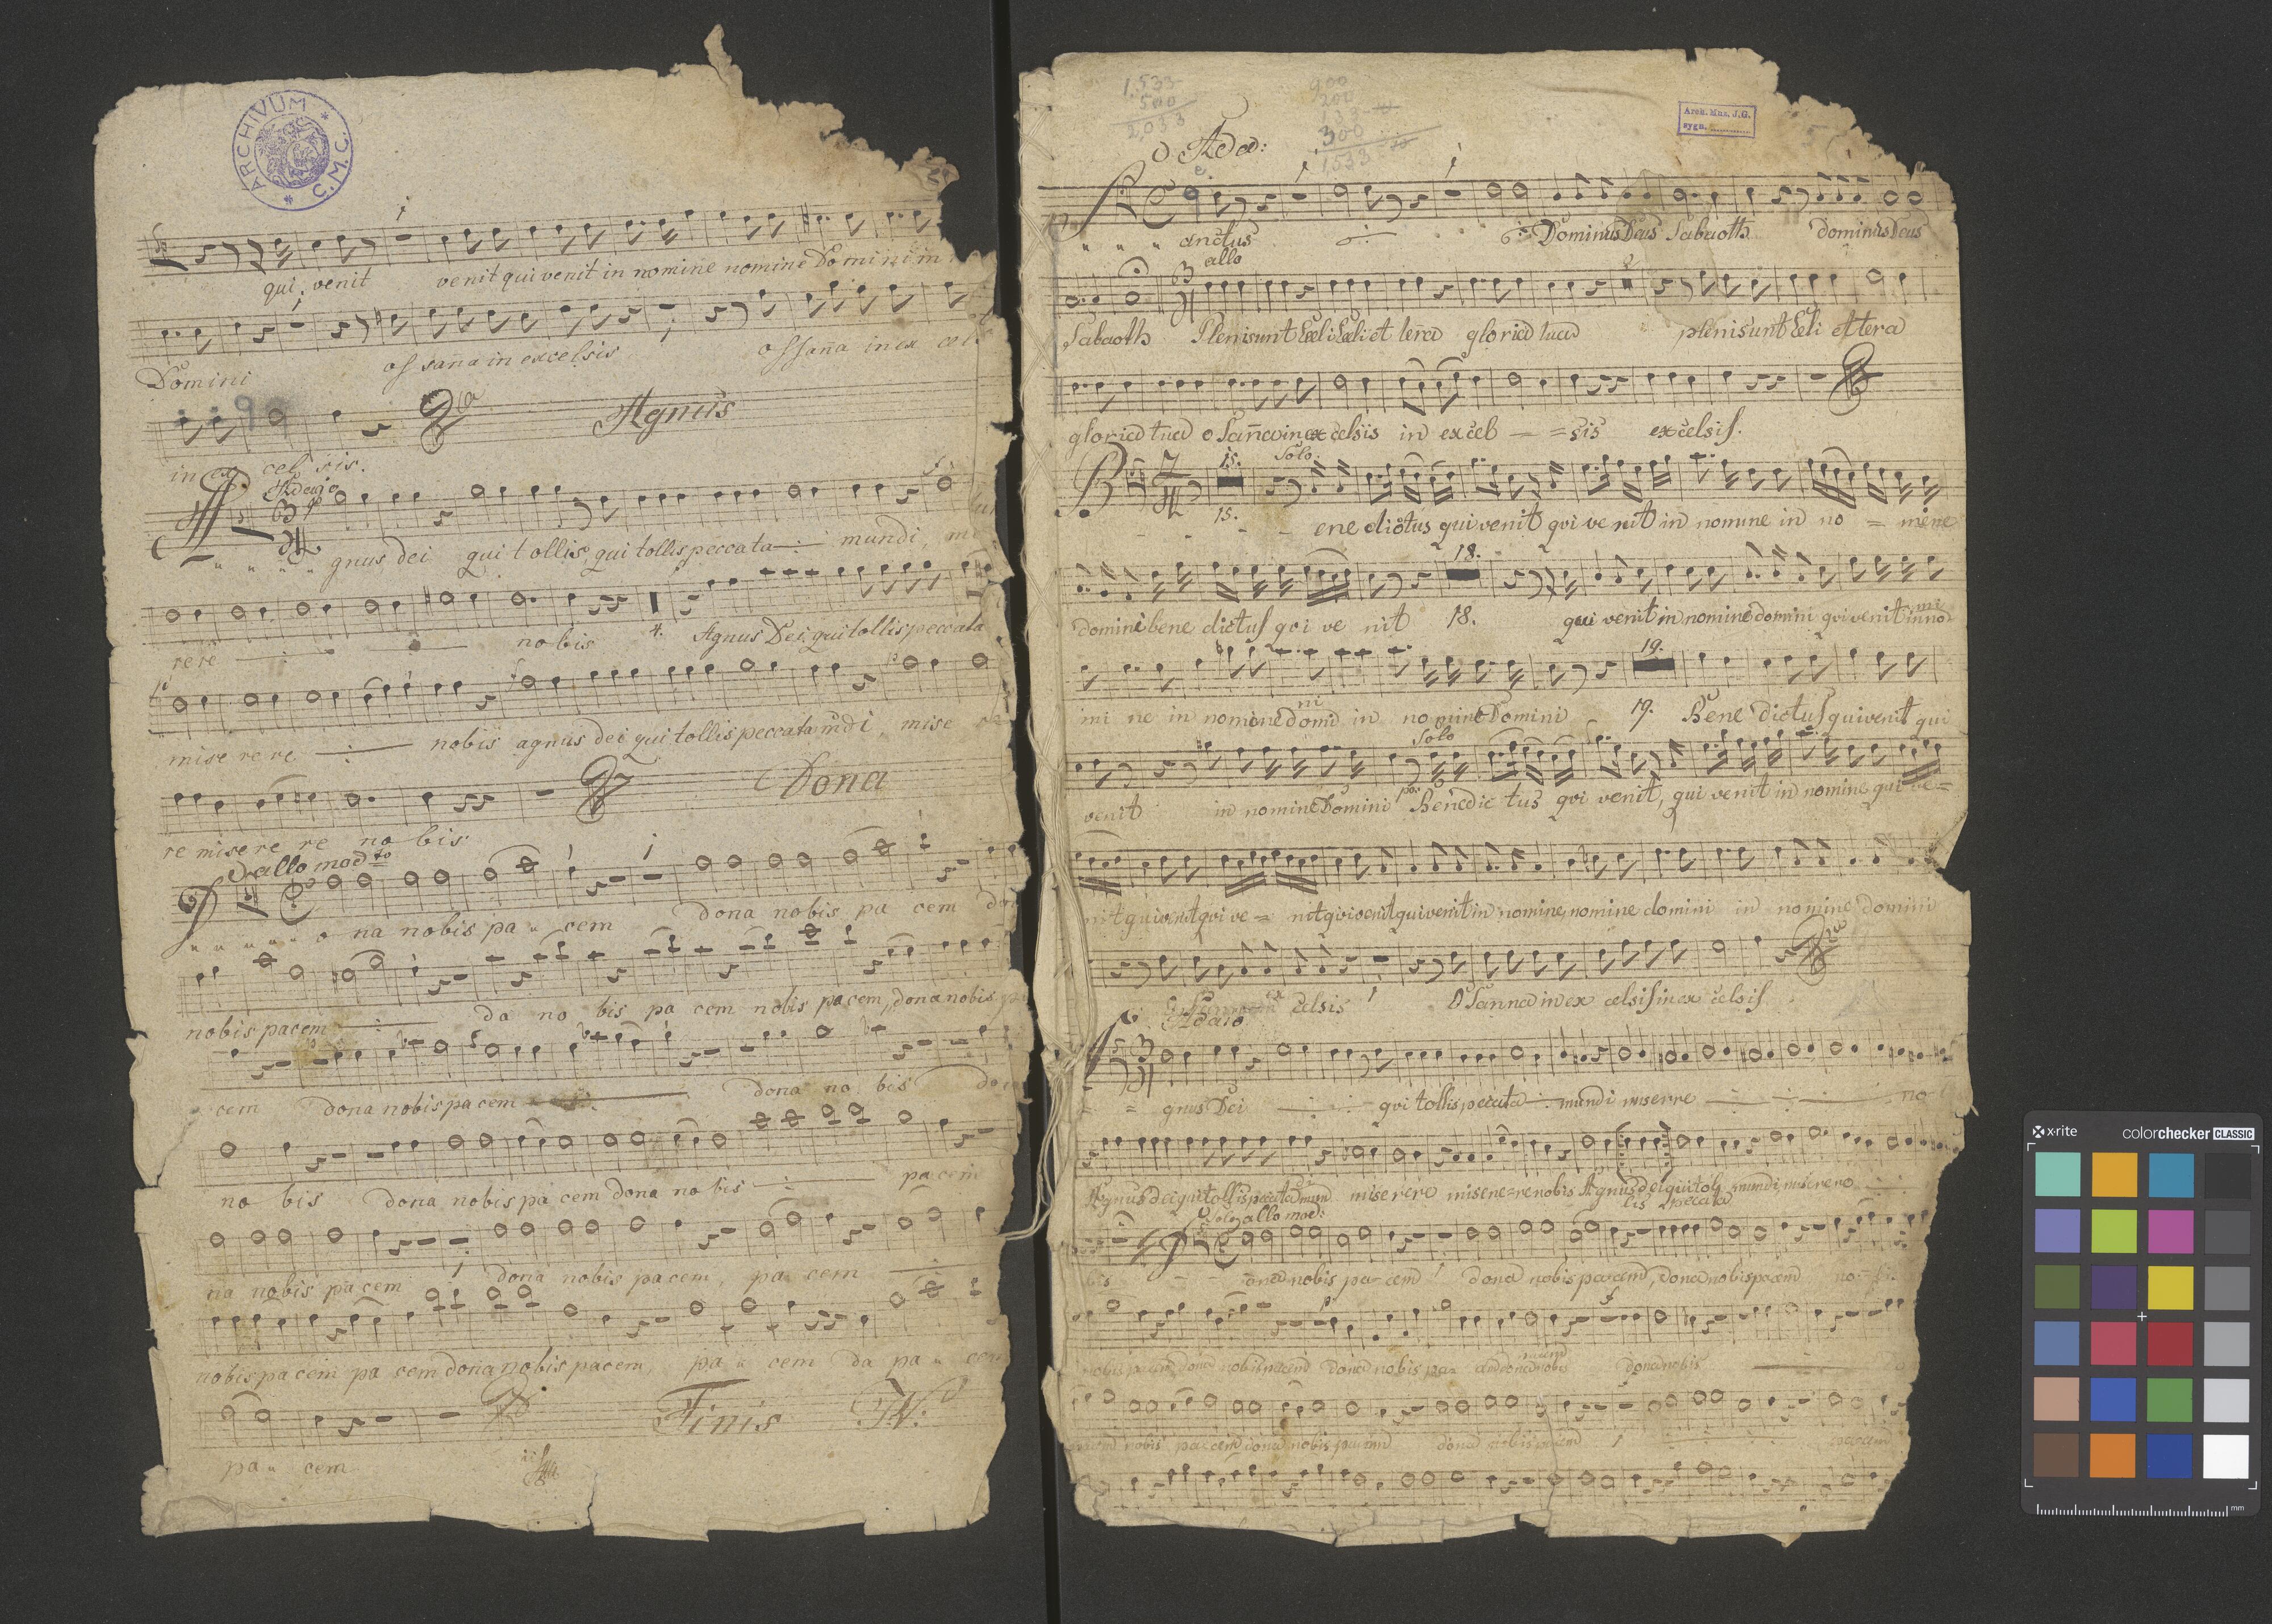 ARCHIVUM * C.M.C. *
qui venit venit qui venit in nomine nomine Domini in
Domini ossana in excelsis ossana in ex cel
Agnus
in ex cel sis.
Adagio
gnus dei qui tollis, qui tollis peccata mundi, mi
rere nobis 4. Agnus Dei qui tollis peccata
mise re re nobis agnus dei qui tollis peccata mũdi, mise re
Dona
re misere re no bis
allo modto
o na nobis pa cem dona nobis pa cem do
nobis pacem da no bis pa cem nobis pacem, dona nobis pa
cem dona nobis pa cem dona no bis do
no bis dona nobis pa cem dona no bis pacem
na nobis pa cem dona nobis pacem, pa cem
nobis pa cem pa cem dona nobis pacem, pa cem da pa cem
Finis
pa cem
1,533
500
2,033
900
200
133
300
1533
Arch. Mus. J.G.
sygn. ............
Ado:
anctus Dominus Deus Sabaoth dominus Deus
allo
Sabaoth Pleni sunt Cæli Cæli et terra gloria tua pleni sunt Cæli et tera
gloria tua o Sanna in excelsis in excel = sis excelsis.
15. Solo.
15. ene dictus qui venit qvi ve nit in nomine in no = mine
18.
domini bene dictus qvi ve nit 18. qui venit in nomine domini qvi venit in no mi
19.
mi ne in nomine domi ni in nomine Domini 19. Bene dictus qui venit qui
Solo
venit in nomine Domini po: Benedic tus qvi venit, qui venit in nomine qui ve=
nit qui venit qvi ve = nit qvi venit qui venit in nomine, nomine domini in nomine domini
ex celsis O Sanna in ex celsis in ex celsis
Adaio
gnus Dei qvi tollis peccata mundi miserre no
Agnus dei qui tollis peccata mun di miserere misere=re nobis Agnus dei qui tol lis peccata mundi miserere
Solo allo mod:
bis ona nobis pa=cem dona nobis pacem, dona nobis pacem no=bis
nobis pacem dona nobis pacem dona nobis pa= cem dona nobis pacem dona nobis
pacem nobis pacem dona nobis pacem dona nobis pacem pacem